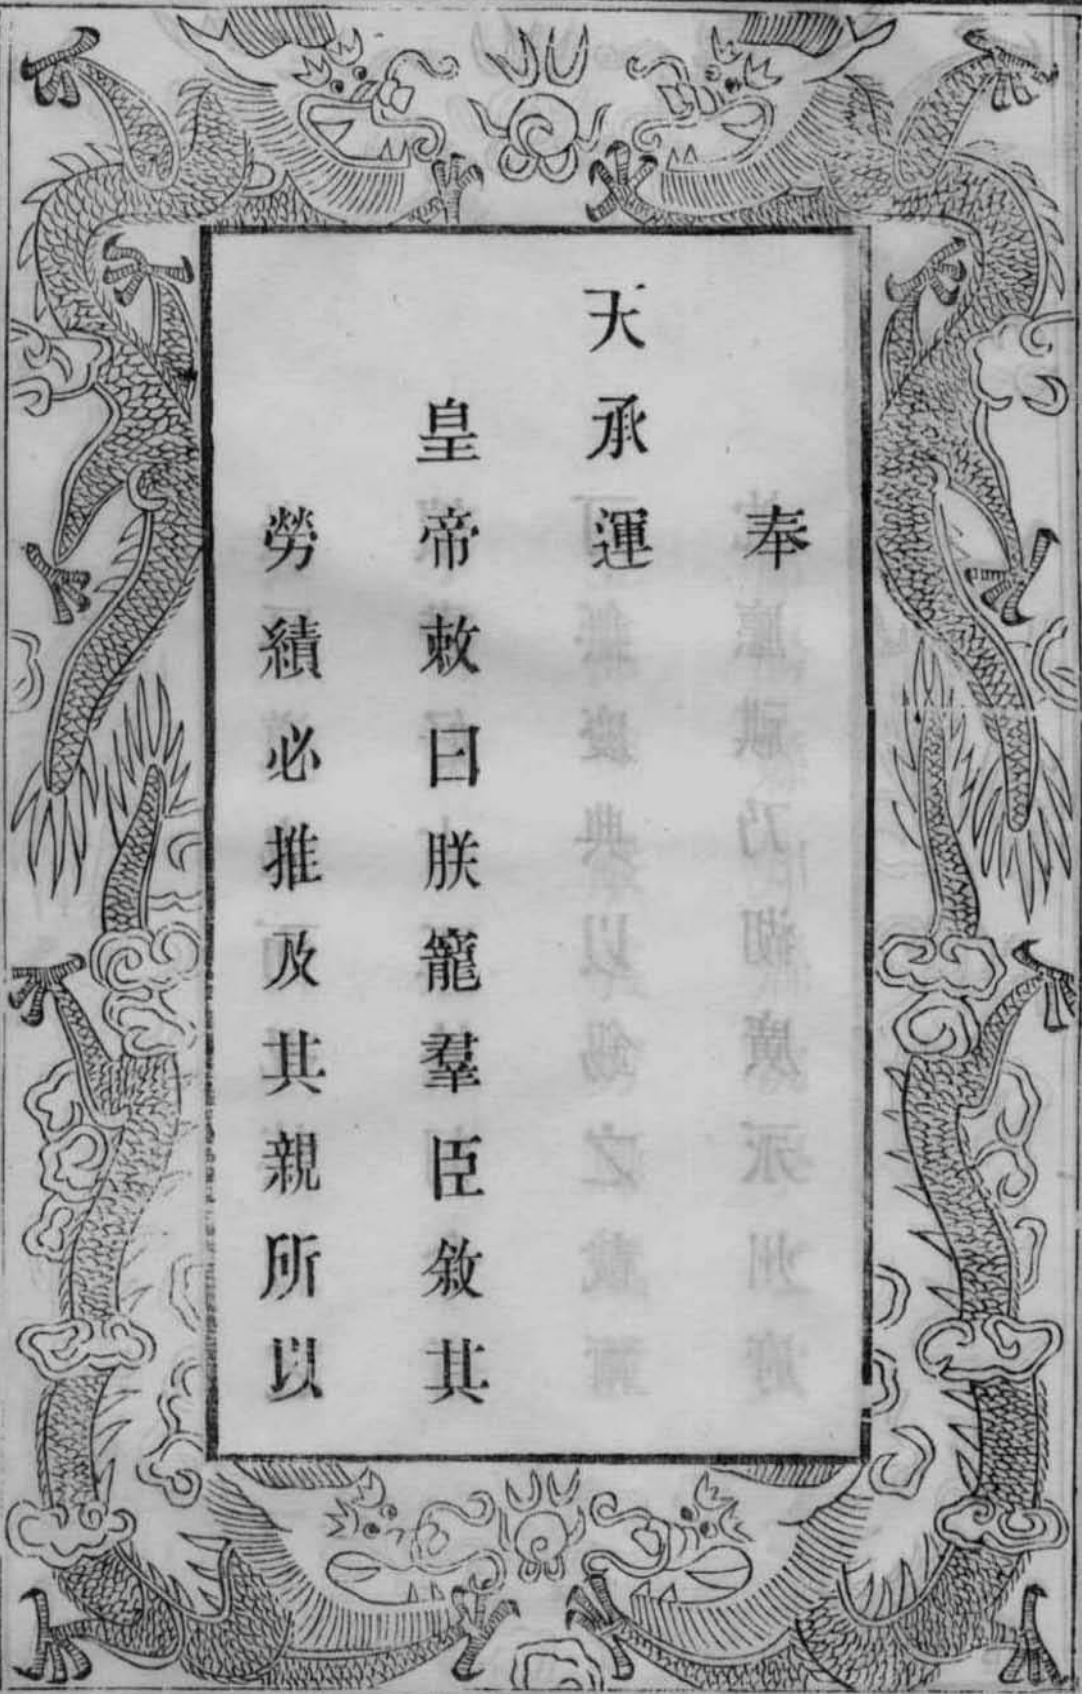 奉
天承運
皇帝敕曰朕寵羣臣敘其
勞績必推及其親所以